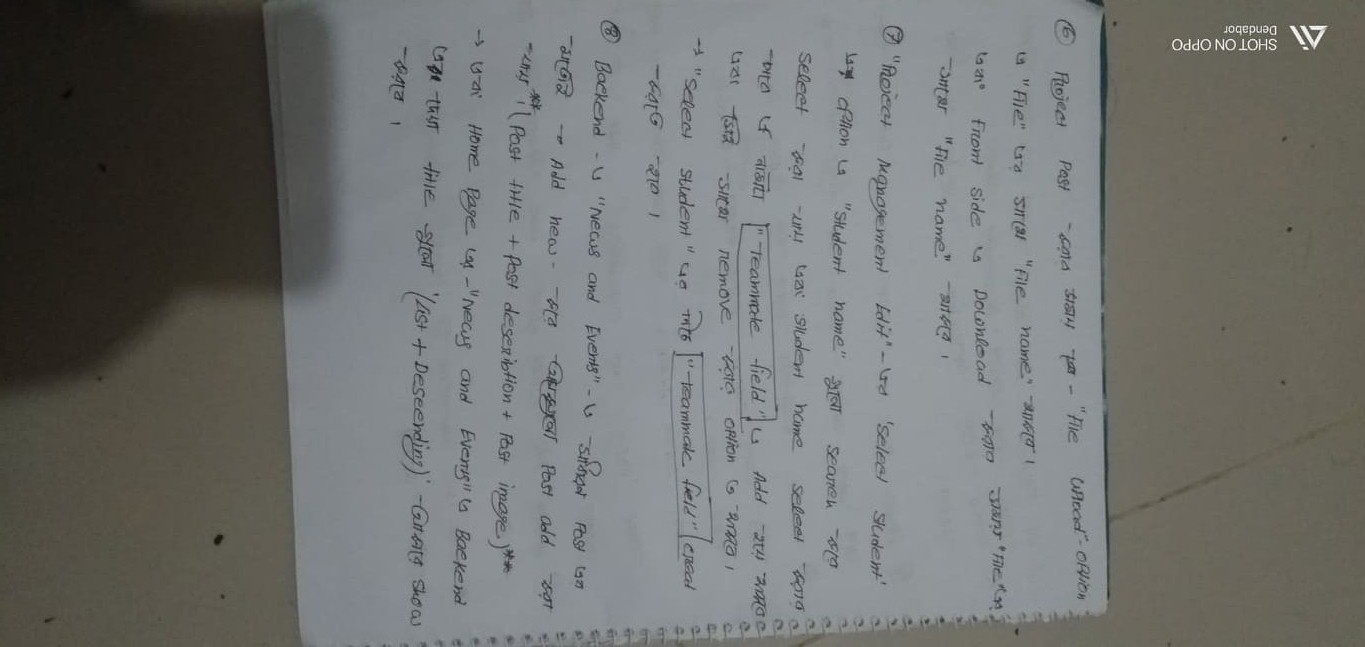 ⑥ Project Post করার সময় - "File upload" option
এ "File" এর সাথে "File name" থাকবে।
এবং Front side এ Download করার "File" এর
"File name" থাকবে।
⑦ "Project Management Edit" - এর 'select student'
option এ "student name" গুলো search করে
select করা যাবে এবং student name select করার
"Teammate field" এ Add হয়ে যাবে
এবং remove করার option ও থাকবে।
→ "select student" এর নিচে "Teammate field"
করতে হবে।
⑧ Backend - এ "News and Events" - এ Post এর
→ Add new - করে Post add করা
যাবে। (Post title + Post description + Post image)
→ এবং Home Page এর - "News and Events" এ Backend
title গুলো (List + Deseending) show
করবে।
SHOT ON OPPO
Dendabor